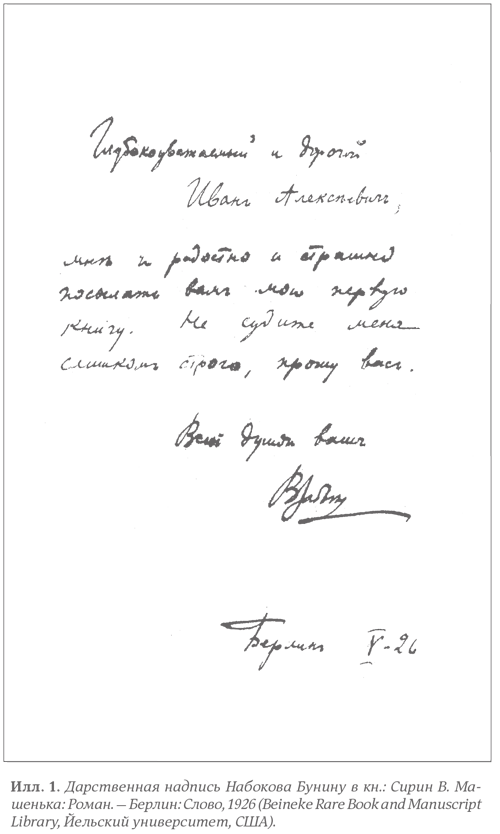 Глубокоуважаемый и дорогой
Иванъ Алексѣевичъ,
мнѣ и радостно и страшно
посылать вамъ мою первую
книгу. Не судите меня
слишкомъ строго, прошу васъ.
Всей душой вашъ
Берлинъ V-26
Илл. 1. Дарственная надпись Набокова Бунину в кн.: Сирин В. Ма-
шенька: Роман. — Берлин: Слово, 1926 (Beineke Rare Book and Manuscript
Library, Йельский университет, США).